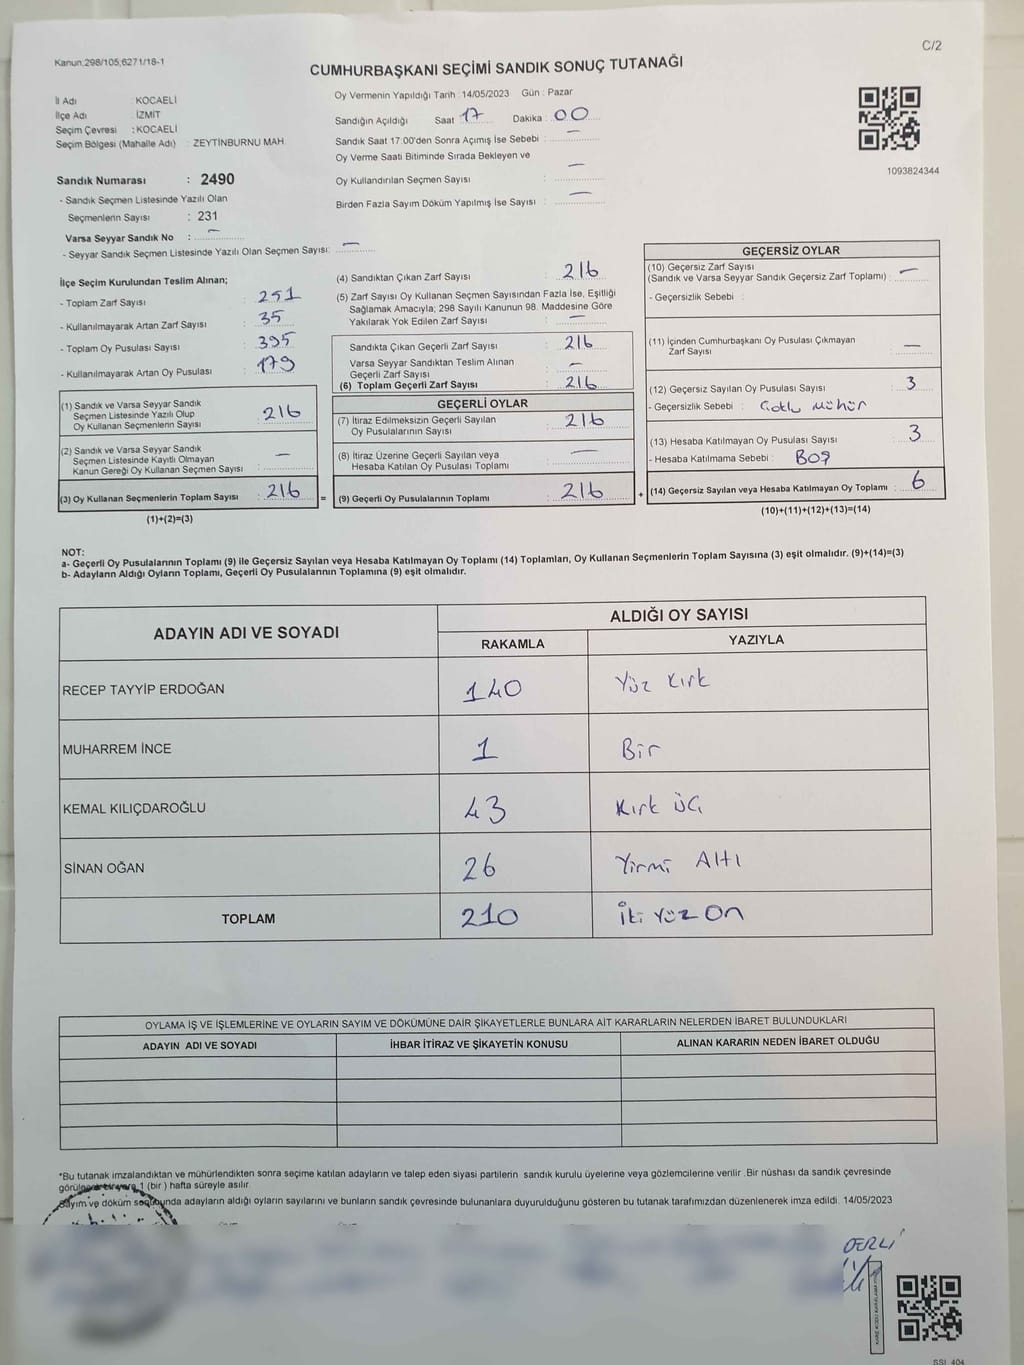 C/2
Kanun:298/105;6271/18-1
CUMHURBAŞKANI SEÇİMİ SANDIK SONUÇ TUTANAĞI
İl Adı : KOCAELİ
İlçe Adı : İZMİT
Seçim Çevresi : KOCAELİ
Seçim Bölgesi (Mahalle Adı) : ZEYTİNBURNU MAH.
Sandık Numarası : 2490
- Sandık Seçmen Listesinde Yazılı Olan
Seçmenlerin Sayısı : 231
Varsa Seyyar Sandık No : —
- Seyyar Sandık Seçmen Listesinde Yazılı Olan Seçmen Sayısı: —
Oy Vermenin Yapıldığı Tarih : 14/05/2023 Gün : Pazar
Sandığın Açıldığı Saat 17 Dakika : 00
Sandık Saat 17:00'den Sonra Açımış İse Sebebi : —
Oy Verme Saati Bitiminde Sırada Bekleyen ve
Oy Kullandırılan Seçmen Sayısı : —
Birden Fazla Sayım Döküm Yapılmış İse Sayısı : —
1093824344
İlçe Seçim Kurulundan Teslim Alınan;
- Toplam Zarf Sayısı : 251
- Kullanılmayarak Artan Zarf Sayısı : 35
- Toplam Oy Pusulası Sayısı : 395
- Kullanılmayarak Artan Oy Pusulası : 179
(1) Sandık ve Varsa Seyyar Sandık
Seçmen Listesinde Yazılı Olup
Oy Kullanan Seçmenlerin Sayısı : 216
(2) Sandık ve Varsa Seyyar Sandık
Seçmen Listesinde Kayıtlı Olmayan
Kanun Gereği Oy Kullanan Seçmen Sayısı : —
(3) Oy Kullanan Seçmenlerin Toplam Sayısı : 216 =
(1)+(2)=(3)
(4) Sandıktan Çıkan Zarf Sayısı : 216
(5) Zarf Sayısı Oy Kullanan Seçmen Sayısından Fazla İse, Eşitliği
Sağlamak Amacıyla; 298 Sayılı Kanunun 98. Maddesine Göre
Yakılarak Yok Edilen Zarf Sayısı : —
Sandıkta Çıkan Geçerli Zarf Sayısı : 216
Varsa Seyyar Sandıktan Teslim Alınan
Geçerli Zarf Sayısı : —
(6) Toplam Geçerli Zarf Sayısı : 216
GEÇERLİ OYLAR
(7) İtiraz Edilmeksizin Geçerli Sayılan
Oy Pusulalarının Sayısı : 216
(8) İtiraz Üzerine Geçerli Sayılan veya
Hesaba Katılan Oy Pusulası Toplamı : —
(9) Geçerli Oy Pusulalarının Toplamı : 216 +
GEÇERSİZ OYLAR
(10) Geçersiz Zarf Sayısı
(Sandık ve Varsa Seyyar Sandık Geçersiz Zarf Toplamı) : —
- Geçersizlik Sebebi :
(11) İçinden Cumhurbaşkanı Oy Pusulası Çıkmayan
Zarf Sayısı : —
(12) Geçersiz Sayılan Oy Pusulası Sayısı : 3
- Geçersizlik Sebebi : Çoklu Mühür
(13) Hesaba Katılmayan Oy Pusulası Sayısı : 3
- Hesaba Katılmama Sebebi : Boş
(14) Geçersiz Sayılan veya Hesaba Katılmayan Oy Toplamı : 6
(10)+(11)+(12)+(13)=(14)
NOT:
a- Geçerli Oy Pusulalarının Toplamı (9) ile Geçersiz Sayılan veya Hesaba Katılmayan Oy Toplamı (14) Toplamları, Oy Kullanan Seçmenlerin Toplam Sayısına (3) eşit olmalıdır. (9)+(14)=(3)
b- Adayların Aldığı Oyların Toplamı, Geçerli Oy Pusulalarının Toplamına (9) eşit olmalıdır.
ADAYIN ADI VE SOYADI
ALDIĞI OY SAYISI
RAKAMLA YAZIYLA
RECEP TAYYİP ERDOĞAN 140 Yüz Kırk
MUHARREM İNCE 1 Bir
KEMAL KILIÇDAROĞLU 43 Kırk Üç
SİNAN OĞAN 26 Yirmi Altı
TOPLAM 210 İki Yüz On
OYLAMA İŞ VE İŞLEMLERİNE VE OYLARIN SAYIM VE DÖKÜMÜNE DAİR ŞİKAYETLERLE BUNLARA AİT KARARLARIN NELERDEN İBARET BULUNDUKLARI
ADAYIN ADI VE SOYADI İHBAR İTİRAZ VE ŞİKAYETİN KONUSU ALINAN KARARIN NEDEN İBARET OLDUĞU
*Bu tutanak imzalandıktan ve mühürlendikten sonra seçime katılan adayların ve talep eden siyasi partilerin sandık kurulu üyelerine veya gözlemcilerine verilir .Bir nüshası da sandık çevresinde
1 (bir ) hafta süreyle asılır.
Sayım ve döküm adayların aldığı oyların sayılarını ve bunların sandık çevresinde bulunanlara duyurulduğunu gösteren bu tutanak tarafımızdan düzenlenerek imza edildi. 14/05/2023
SSI 404